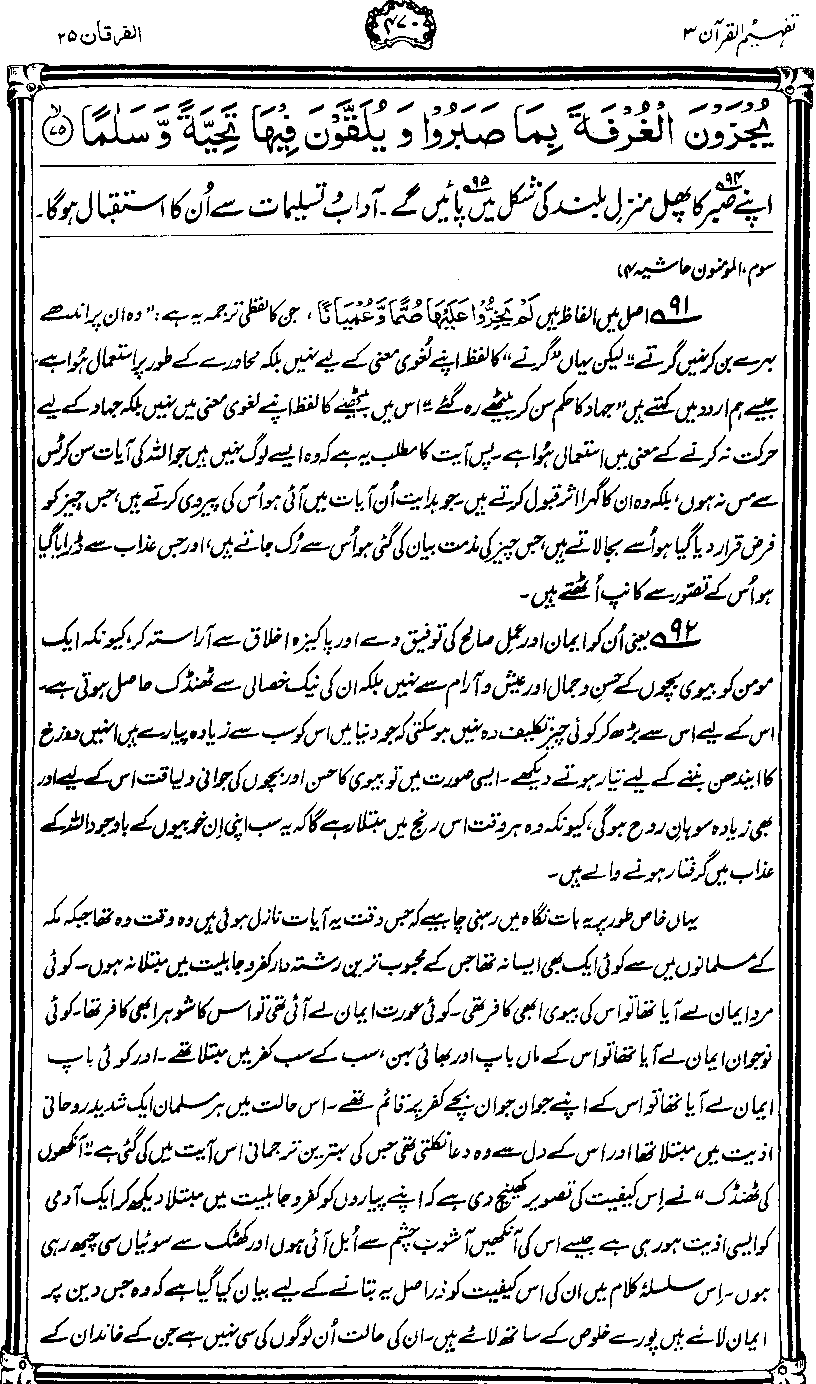 تفہیم القرآن ۳
۴۷۰
الفرقان ۲۵
يُجْزَوْنَ الْغُرْفَةَ بِمَا صَبَرُوْا وَ يُلَقَّوْنَ فِيْهَا تَحِيَّةً وَّ سَلٰمًا ﴿۷۵﴾
اپنے صبر۹۴ کا پھل منزلِ بلند کی شکل میں۹۵ پائیں گے۔ آداب و تسلیمات سے اُن کا استقبال ہوگا۔
سوم، المومنون حاشیہ ۴)
۹۱ اصل میں الفاظ ہیں لَمْ يَخِرُّوْا عَلَيْهَا صُمًّا وَّ عُمْيَانًا، جن کا لفظی ترجمہ یہ ہے: ”وہ ان پر اندھے
بہرے بن کر نہیں گرتے“۔ لیکن یہاں ”گرنے“ کا لفظ اپنے لغوی معنی کے لیے نہیں بلکہ محاورے کے طور پر استعمال ہُوا ہے۔
جیسے ہم اردو میں کہتے ہیں ”جہاد کا حکم سن کر بیٹھے رہ گئے“۔ اس میں بیٹھنے کا لفظ اپنے لغوی معنی میں نہیں بلکہ جہاد کے لیے
حرکت نہ کرنے کے معنی میں استعمال ہُوا ہے۔ پس آیت کا مطلب یہ ہے کہ وہ ایسے لوگ نہیں ہیں جو اللہ کی آیات سن کر ٹس
سے مس نہ ہوں، بلکہ وہ ان کا گہرا اثر قبول کرتے ہیں۔ جو ہدایت اُن آیات میں آئی ہو اُس کی پیروی کرتے ہیں، جس چیز کو
فرض قرار دیا گیا ہو اُسے بجا لاتے ہیں، جس چیز کی مذمت بیان کی گئی ہو اُس سے رُک جاتے ہیں، اور جس عذاب سے ڈرایا گیا
ہو اُس کے تصوّر سے کانپ اُٹھتے ہیں۔
۹۲ یعنی اُن کو ایمان اور عملِ صالح کی توفیق دے اور پاکیزہ اخلاق سے آراستہ کر، کیونکہ ایک
مومن کو بیوی بچوں کے حسن و جمال اور عیش و آرام سے نہیں بلکہ ان کی نیک خصالی سے ٹھنڈک حاصل ہوتی ہے۔
اس کے لیے اس سے بڑھ کر کوئی چیز تکلیف دہ نہیں ہو سکتی کہ جو دنیا میں اس کو سب سے زیادہ پیارے ہیں انہیں دوزخ
کا ایندھن بننے کے لیے تیار ہوتے دیکھے۔ ایسی صورت میں تو بیوی کا حسن اور بچوں کی جوانی و لیاقت اس کے لیے اور
بھی زیادہ سوہانِ روح ہوگی، کیونکہ وہ ہر وقت اس رنج میں مبتلا رہے گا کہ یہ سب اپنی اِن خوبیوں کے باوجود اللہ کے
عذاب میں گرفتار ہونے والے ہیں۔
یہاں خاص طور پر یہ بات نگاہ میں رہنی چاہیے کہ جس وقت یہ آیات نازل ہوئی ہیں وہ وقت وہ تھا جبکہ مکہ
کے مسلمانوں میں سے کوئی ایک بھی ایسا نہ تھا جس کے محبوب ترین رشتہ دار کفر و جاہلیت میں مبتلا نہ ہوں۔ کوئی
مرد ایمان لے آیا تھا تو اس کی بیوی ابھی کافر تھی۔ کوئی عورت ایمان لے آئی تھی تو اس کا شوہر ابھی کافر تھا۔ کوئی
نوجوان ایمان لے آیا تھا تو اس کے ماں باپ اور بھائی بہن، سب کے سب کفر میں مبتلا تھے۔ اور کوئی باپ
ایمان لے آیا تھا تو اس کے اپنے جوان جوان بچے کفر پر قائم تھے۔ اس حالت میں ہر مسلمان ایک شدید روحانی
اذیت میں مبتلا تھا اور اس کے دل سے وہ دعا نکلتی تھی جس کی بہترین ترجمانی اس آیت میں کی گئی ہے۔ ”آنکھوں
کی ٹھنڈک“ نے اِس کیفیت کی تصویر کھینچ دی ہے کہ اپنے پیاروں کو کفر و جاہلیت میں مبتلا دیکھ کر ایک آدمی
کو ایسی اذیت ہو رہی ہے جیسے اس کی آنکھیں آشوبِ چشم سے اُبل آئی ہوں اور کھٹک سے سوئیاں سی چبھ رہی
ہوں۔ اِس سلسلۂ کلام میں ان کی اس کیفیت کو دراصل یہ بتانے کے لیے بیان کیا گیا ہے کہ وہ جس دین پر
ایمان لائے ہیں پورے خلوص کے ساتھ لائے ہیں۔ ان کی حالت اُن لوگوں کی سی نہیں ہے جن کے خاندان کے